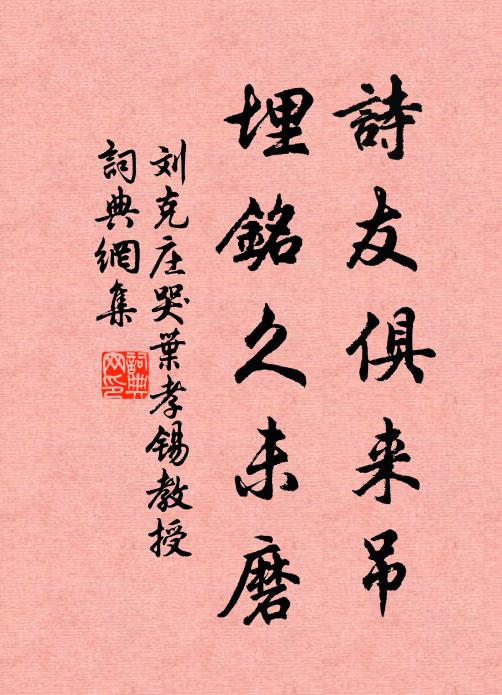 詩友俱来吊
埋銘久未磨
刘克庄哭葉孝锡教授
詞典網集
詞典網印